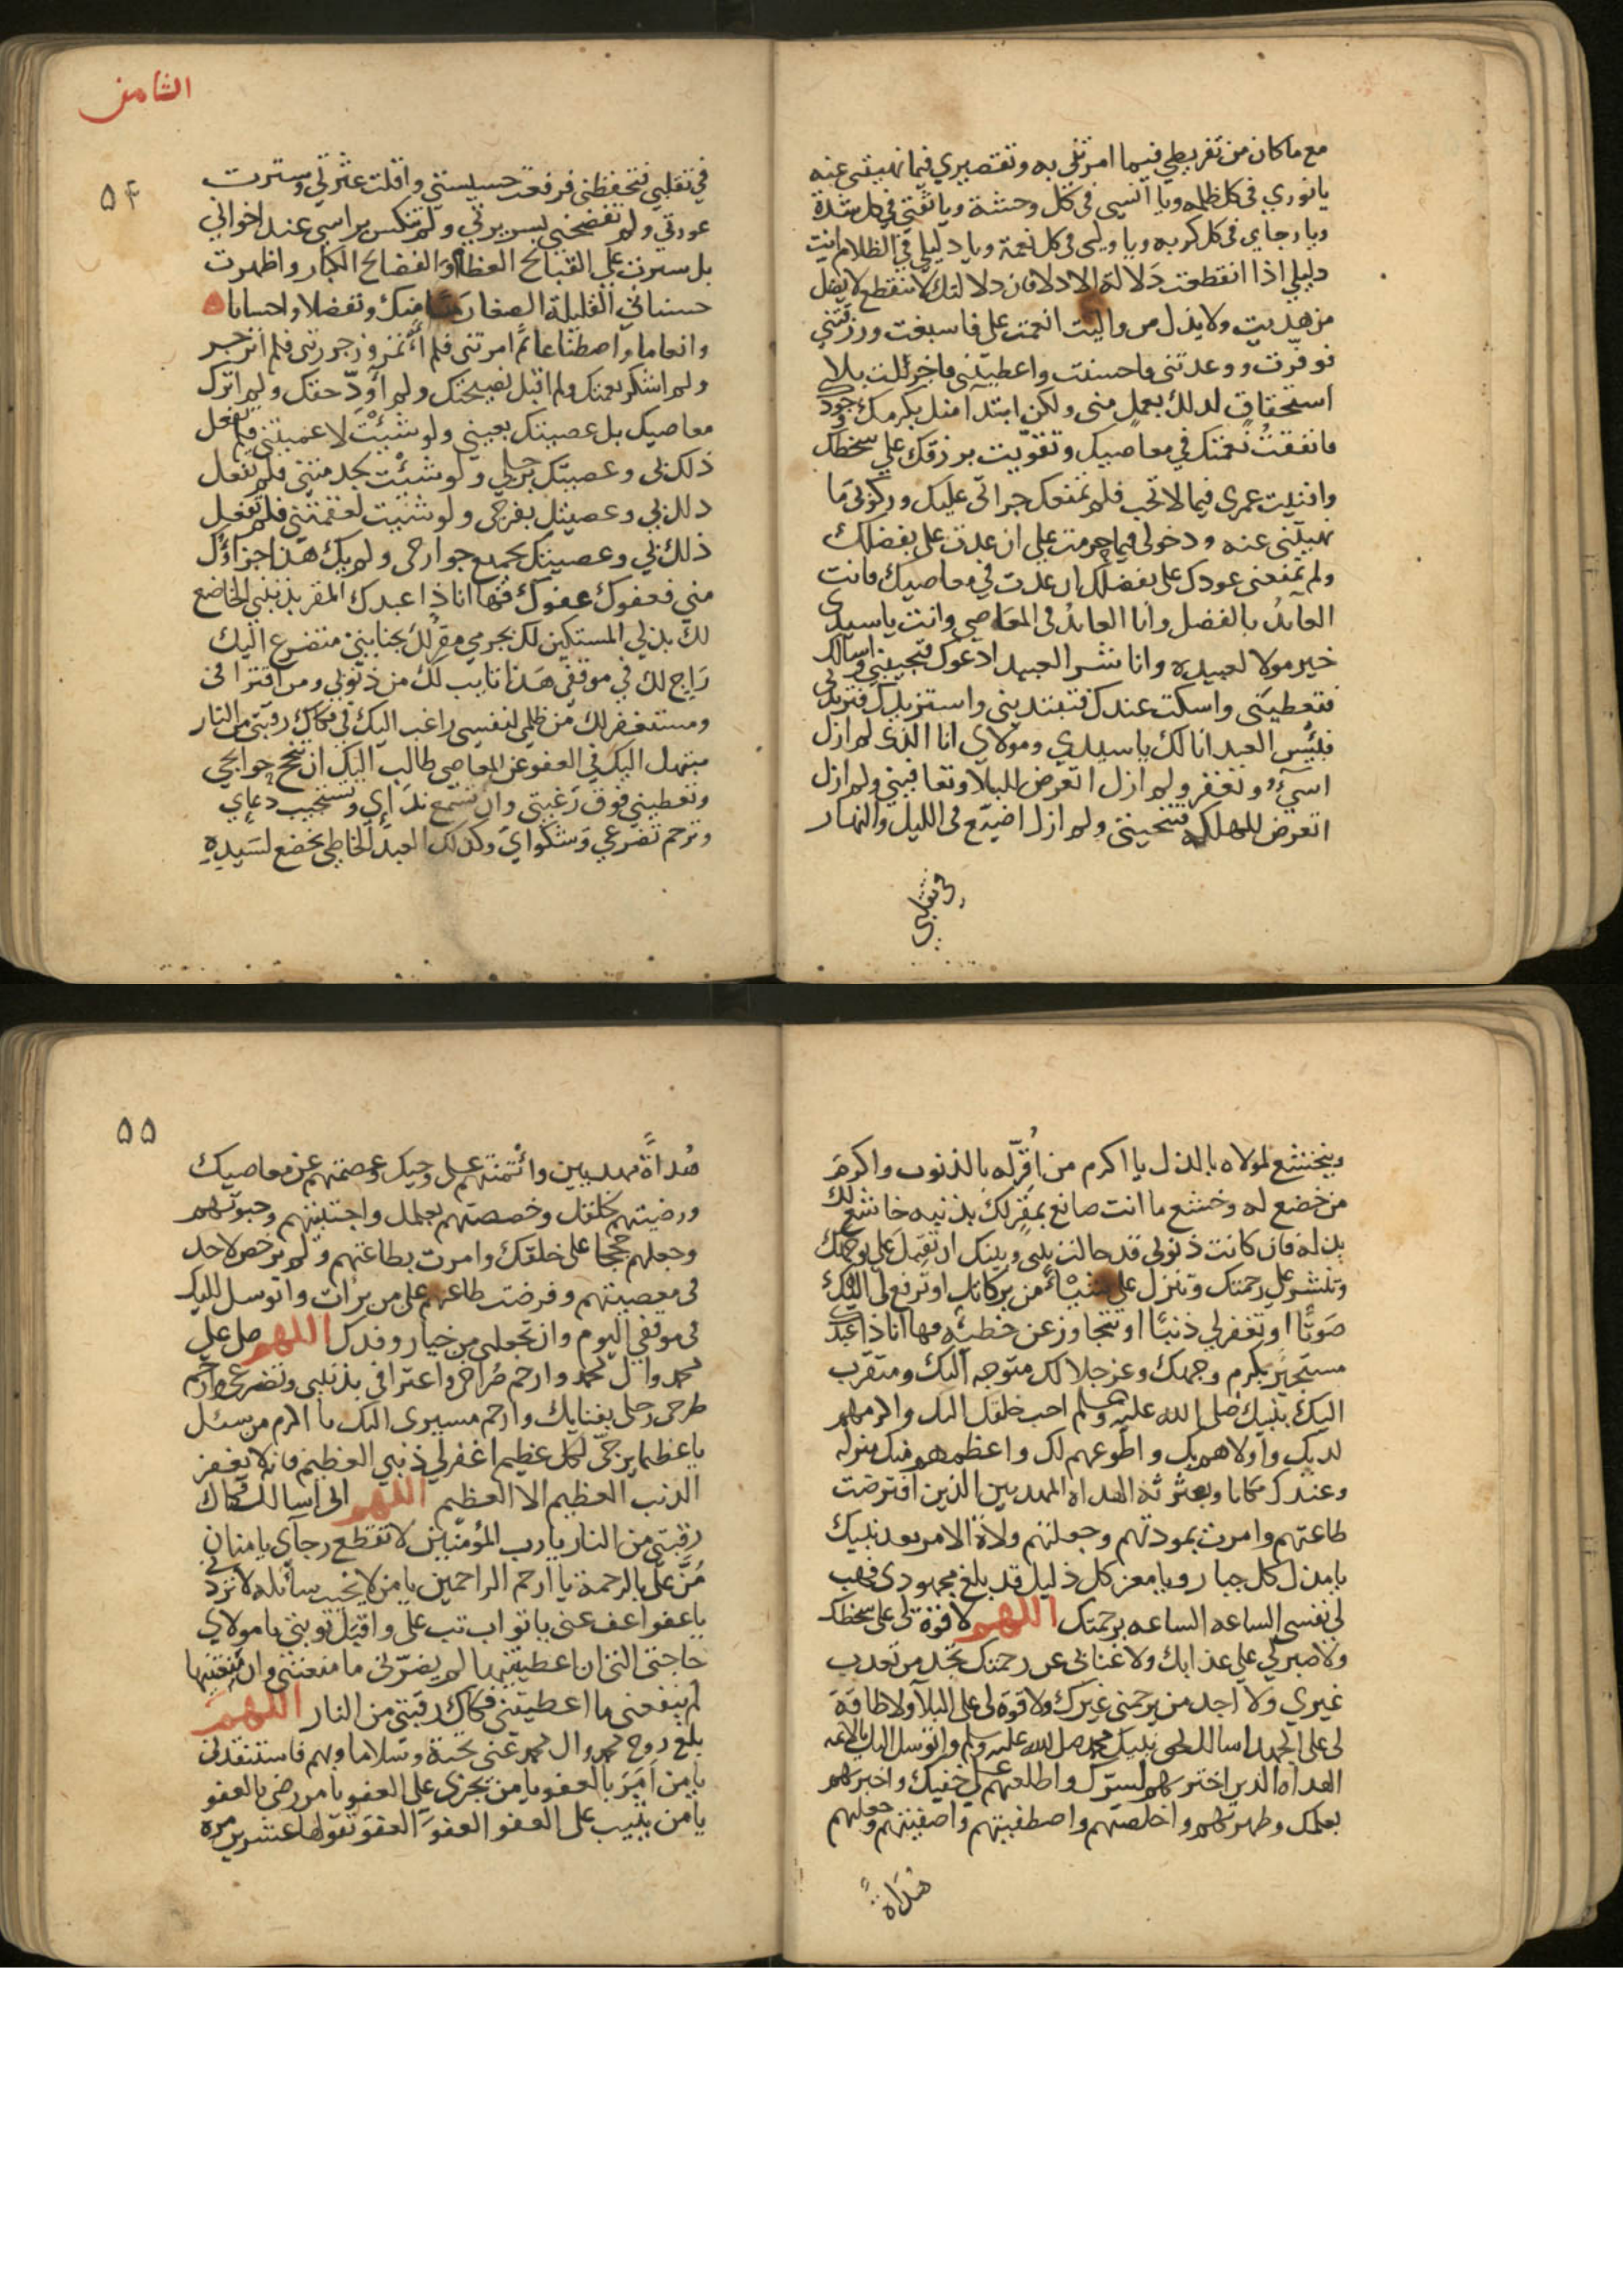 مع ما كان من تفريطي فيما امرتني به وتقصيري فيما نهيتني عنه
يا نوري في كل ظلمه ويا انسي في كل وحشة ويا ثقتي في كل شدة
ويا رجاي في كل كربه ويا وليي في كل نعمة ويا دليلي في الظلام انت
دليلي اذا انقطعت دلالة الادلا فان دلالتك لا تنقطع لا يضل
من هديت ولا يذل من واليت انعمت علي فاسبغت ورزقتني
فوفرت ووعدتني فاحسنت واعطيتني فاجزلت بلا
استحقاق لذلك بعمل مني ولكن ابتدآ منك بكرمك وجودك
فانفقت نعمتك في معاصيك وتقويت برزقك علي سخطك
وافنيت عمري فيما لا تحب فلم تمنعك جراتي عليك وركوبي ما
نهيتني عنه ودخولي فيما حرمت علي ان عدت علي بفضلك
ولم تمنعني عودك علي بفضلك ان عدت في معاصيك فانت
العائد بالفضل وانا العائد في المعاصي وانت يا سيدي
خير مولا لعبيده وانا شر العبيد ادعوك فتجيبني واسالك
فتعطيني واسكت عندك فتبتديني واستزيدك فتزيدني
فبئس العبد انا لك يا سيدي ومولاي انا الذي لم ازل
اسيء وتغفر ولم ازل اتعرض للبلا وتعافيني ولم ازل
اتعرض للهلكه فتنجيني ولم ازل اضيع في الليل والنهار
في تقلبي
الثامن
٥٤
في تقلبي فتحفظني فرفعت خسيستي واقلت عثرتي وسترت
عورتي ولم تفضحني بسريرتي ولم تنكس براسي عند اخواني
بل سترت علي القبائح العظام والفضائح الكبار واظهرت
حسناتي القليلة الصغار منا منك وتفضلا واحسانا
وانعاما واصطناعا ثم امرتني فلم أئتمر وزجرتني فلم انزجر
ولم اشكر نعمتك ولم اقبل نصيحتك ولم أودّ حقك ولم اترك
معاصيك بل عصيتك بعيني ولو شئت لاعميتني فلم تفعل
ذلك بي وعصيتك برجلي ولو شئت لجذمتني فلم تفعل
ذلك بي وعصيتك بفرجي ولو شئت لعقمتني فلم تفعل
ذلك بي وعصيتك بجميع جوارحي ولم يك هذا جزاؤك
مني فعفوك عفوك فها انا ذا عبدك المقر بذنبي الخاضع
لك بذلي المستكين لك بجرمي مقر لك بجنايتي متضرع اليك
راج لك في موقفي هذا تايب لك من ذنوبي ومن اقترافي
ومستغفر لك من ظلمي لنفسي راغب اليك في فكاك رقبتي من النار
مبتهل اليك في العفو عن المعاصي طالب اليك ان تنجح حوايجي
وتعطيني فوق رغبتي وان تسمع ندآءي وتستجيب دعاءي
وترحم تضرعي وشكواي وكذلك العبد الخاطي يخضع لسيده
ويخشع لمولاه بالذل يا اكرم من اقر له بالذنوب واكرم
من خضع له وخشع ما انت صانع بمقر لك بذنبه خاشع لك
بذله فان كانت ذنوبي قد حالت بيني وبينك ان تقبل علي بوجهك
وتنشر علي رحمتك وتنزل علي شيئا من بركاتك او ترفع لي اليك
صوتا او تغفر لي ذنبا او تتجاوز عن خطيئه فها انا ذا عبدك
مستجير بكرم وجهك وعز جلالك متوجه اليك ومتقرب
اليك بنبيك صلى الله عليه وسلم احب خلقك اليك واكرمهم
لديك واولاهم بك واطوعهم لك واعظمهم منك منزله
وعندك مكانا وبعترته الهداه المهديين الذين افترضت
طاعتهم وامرت بمودتهم وجعلتهم ولاة الامر بعد نبيك
يا مذل كل جبار ويا معز كل ذليل قد بلغ مجهودي فهب
لي نفسي الساعه الساعه برحمتك اللهم لا قوة لي على سخطك
ولا صبر لي علي عذابك ولا غنا لي عن رحمتك تجد من تعذب
غيري ولا اجد من يرحمني غيرك ولا قوة لي على البلآ ولا طاقة
لي على الجهد اسالك بحق نبيك محمد صلى الله عليه وسلم واتوسل اليك بالائمه
الهداه الذين اخترتهم لسرك واطلعتهم علي خفيك واخترتهم
بعلمك وطهرتهم واخلصتهم واصطفيتهم واصفيتهم وجعلتهم
هداة
٥٥
هداة مهديين وائتمنتهم على وحيك وعصمتهم عن معاصيك
ورضيتهم لخلقك وخصصتهم بعلمك واجتبيتهم وحبوتهم
وجعلتهم حججا على خلقك وامرت بطاعتهم ولم ترخص لاحد
في معصيتهم وفرضت طاعتهم على من برات واتوسل اليك
في موقفي اليوم وان تجعلني من خيار وفدك اللهم صل على
محمد وال محمد وارحم صراخي واعترافي بذنبي وتضرعي وارحم
طرحي رحلي بفنايك وارحم مسيري اليك يا اكرم من سئل
يا عظيما يرجى لكل عظيم اغفر لي ذنبي العظيم فانه لا يغفر
الذنب العظيم الا العظيم اللهم اني اسالك فكاك
رقبتي من النار يا رب المؤمنين لا تقطع رجآي يا منان
منّ علي بالرحمة يا ارحم الراحمين يا من لا يخيب سائله لا تردني
يا عفو اعف عني يا تواب تب علي واقبل توبتي يا مولاي
حاجتي التي ان اعطيتنيها لم يضرني ما منعتني وان منعتنيها
لم ينفعني ما اعطيتني فكاك رقبتي من النار اللهم
بلغ روح محمد وال محمد عني تحية وسلاما وبهم فاستنقذني
يا من امر بالعفو يا من يجزي علي العفو يا من رضي بالعفو
يا من يثيب على العفو العفو العفو تقولها عشرين مره